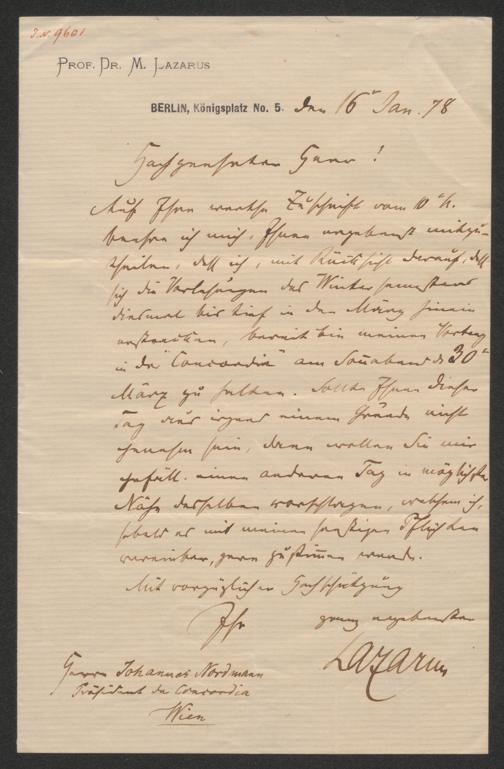 J.N. 9601
PROF. DR. M. LAZARUS
BERLIN, Königsplatz No. 5. den 16t Jan. 78
Hochgeehrter Herr!
Auf Ihre werthe Zuschrift vom 10 d. M.
beehre ich mich, Ihnen ergebenst mitzu-
theilen, daß ich, mit Rücksicht darauf, daß
sich die Vorlesungen des Wintersemesters
diesmal bis tief in den März hinein
erstrecken, bereit bin meinen Vortrag
in der "Concordia" am Sonnabend d 30t
März zu halten. Sollte Ihnen dieser
Tag aus irgend einem Grunde nicht
genehm sein, dann wollen Sie mir
gefäll. einen anderen Tag in möglichster
Nähe desselben vorschlagen, welchem ich,
sobald es mit meinen sonstigen Pflichten
vereinbar, gern zustimmen werde.
Mit vorzüglicher Hochschätzung
Ihr ganz ergebenster
Lazarus
Herrn Johannes Nordmann
Präsident der Concordia
Wien